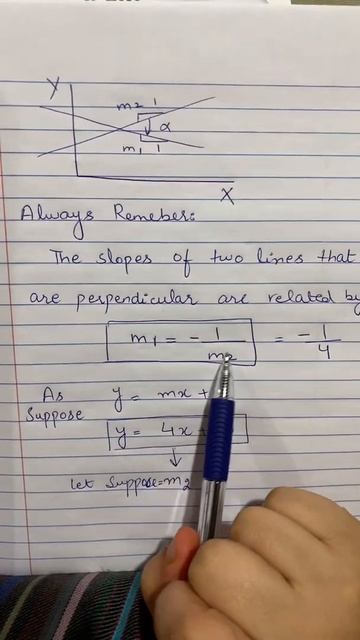 Y
m2 1
α
m1 1
X
Always Remeber:
The slopes of two lines that
are perpendicular are related by
m1 = - 1/m2 = - 1/4
As Suppose y = mx +
y = 4x +
let Suppose = m2